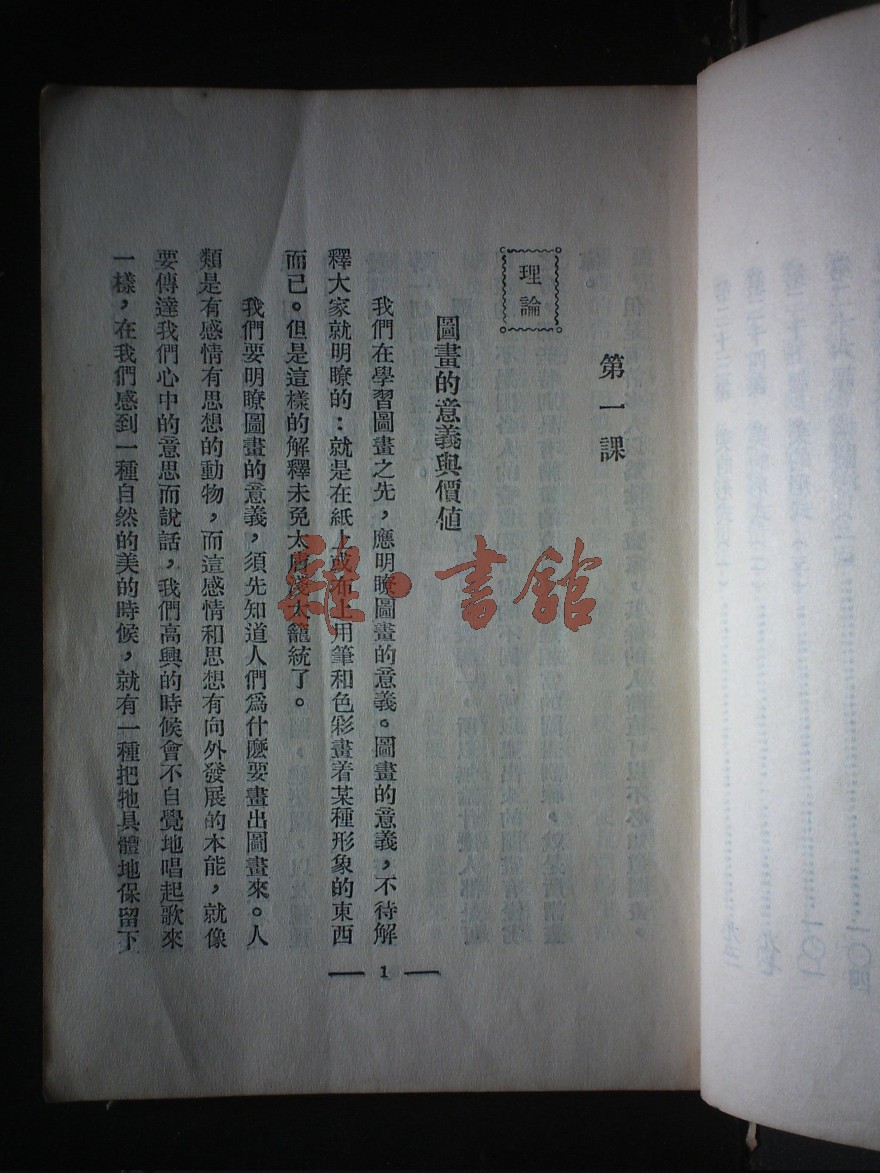 第一課
理論
圖畫的意義與價值
我們在學習圖畫之先，應明瞭圖畫的意義。圖畫的意義，不待解
釋大家就明瞭的：就是在紙上或布上用筆和色彩畫着某種形象的東西
而已。但是這樣的解釋未免太膚淺太籠統了。
我們要明瞭圖畫的意義，須先知道人們爲什麽要畫出圖畫來。人
類是有感情有思想的動物，而這感情和思想有向外發展的本能，就像
要傳達我們心中的意思而說話，我們高興的時候會不自覺地唱起歌來
一樣，在我們感到一種自然的美的時候，就有一種把牠具體地保留下
1
雜·書館